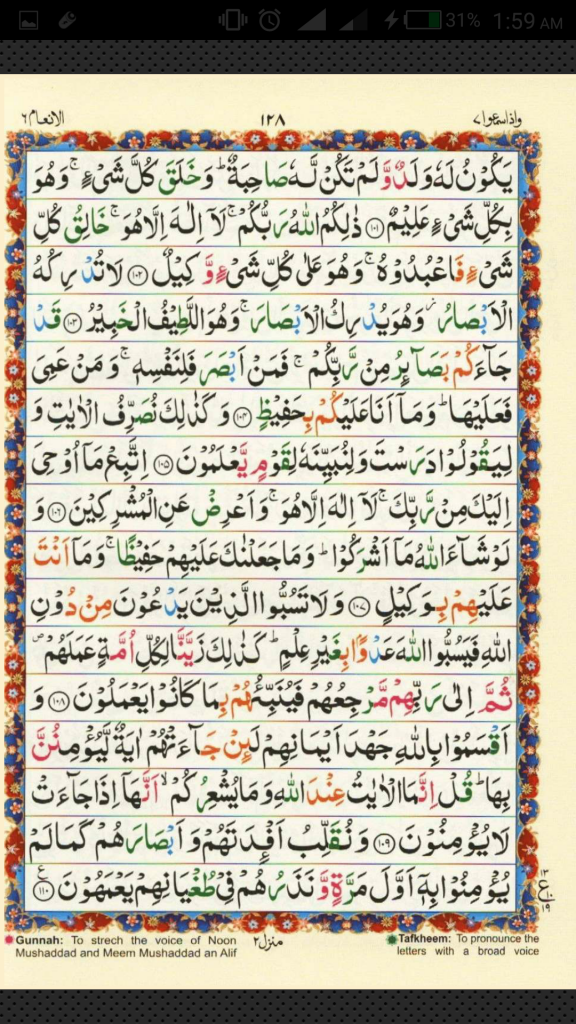 31% 1:59 AM
واذاسمعوا٧ ١٢٨ الانعام٦
يَكُوْنُ لَهٗ وَلَدٌ وَّلَمْ تَكُنْ لَّهٗ صَاحِبَةٌ ؕ وَخَلَقَ كُلَّ شَیْءٍ ۚ وَهُوَ
بِكُلِّ شَیْءٍ عَلِيْمٌ ﴿۱۰۱﴾ ذٰلِكُمُ اللّٰهُ رَبُّكُمْ ۚ لَاۤ اِلٰهَ اِلَّا هُوَ ۚ خَالِقُ كُلِّ
شَیْءٍ فَاعْبُدُوْهُ ۚ وَهُوَ عَلٰى كُلِّ شَیْءٍ وَّكِيْلٌ ﴿۱۰۲﴾ لَا تُدْرِكُهُ
الْاَبْصَارُ ؗ وَهُوَ يُدْرِكُ الْاَبْصَارَ ۚ وَهُوَ اللَّطِيْفُ الْخَبِيْرُ ﴿۱۰۳﴾ قَدْ
جَآءَكُمْ بَصَآىِٕرُ مِنْ رَّبِّكُمْ ۚ فَمَنْ اَبْصَرَ فَلِنَفْسِهٖ ۚ وَمَنْ عَمِیَ
فَعَلَيْهَا ؕ وَمَاۤ اَنَا عَلَيْكُمْ بِحَفِيْظٍ ﴿۱۰۴﴾ وَكَذٰلِكَ نُصَرِّفُ الْاٰيٰتِ وَ
لِيَقُوْلُوْا دَرَسْتَ وَلِنُبَيِّنَهٗ لِقَوْمٍ يَّعْلَمُوْنَ ﴿۱۰۵﴾ اِتَّبِعْ مَاۤ اُوْحِیَ
اِلَيْكَ مِنْ رَّبِّكَ ۚ لَاۤ اِلٰهَ اِلَّا هُوَ ۚ وَاَعْرِضْ عَنِ الْمُشْرِكِيْنَ ﴿۱۰۶﴾ وَ
لَوْ شَآءَ اللّٰهُ مَاۤ اَشْرَكُوْا ؕ وَمَا جَعَلْنٰكَ عَلَيْهِمْ حَفِيْظًا ۚ وَمَاۤ اَنْتَ
عَلَيْهِمْ بِوَكِيْلٍ ﴿۱۰۷﴾ وَلَا تَسُبُّوا الَّذِيْنَ يَدْعُوْنَ مِنْ دُوْنِ
اللّٰهِ فَيَسُبُّوا اللّٰهَ عَدْوًۢا بِغَيْرِ عِلْمٍ ؕ كَذٰلِكَ زَيَّنَّا لِكُلِّ اُمَّةٍ عَمَلَهُمْ ۪
ثُمَّ اِلٰى رَبِّهِمْ مَّرْجِعُهُمْ فَيُنَبِّئُهُمْ بِمَا كَانُوْا يَعْمَلُوْنَ ﴿۱۰۸﴾ وَ
اَقْسَمُوْا بِاللّٰهِ جَهْدَ اَيْمَانِهِمْ لَىِٕنْ جَآءَتْهُمْ اٰيَةٌ لَّيُؤْمِنُنَّ
بِهَا ؕ قُلْ اِنَّمَا الْاٰيٰتُ عِنْدَ اللّٰهِ وَمَا يُشْعِرُكُمْ ۙ اَنَّهَاۤ اِذَا جَآءَتْ
لَا يُؤْمِنُوْنَ ﴿۱۰۹﴾ وَنُقَلِّبُ اَفْـِٕدَتَهُمْ وَاَبْصَارَهُمْ كَمَا لَمْ
يُؤْمِنُوْا بِهٖۤ اَوَّلَ مَرَّةٍ وَّنَذَرُهُمْ فِیْ طُغْيَانِهِمْ يَعْمَهُوْنَ ﴿۱۱۰﴾ ع
١٣
ع١٠
١٩
Gunnah: To strech the voice of Noon
Mushaddad and Meem Mushaddad an Alif
منزل٢
Tafkheem: To pronounce the
letters with a broad voice